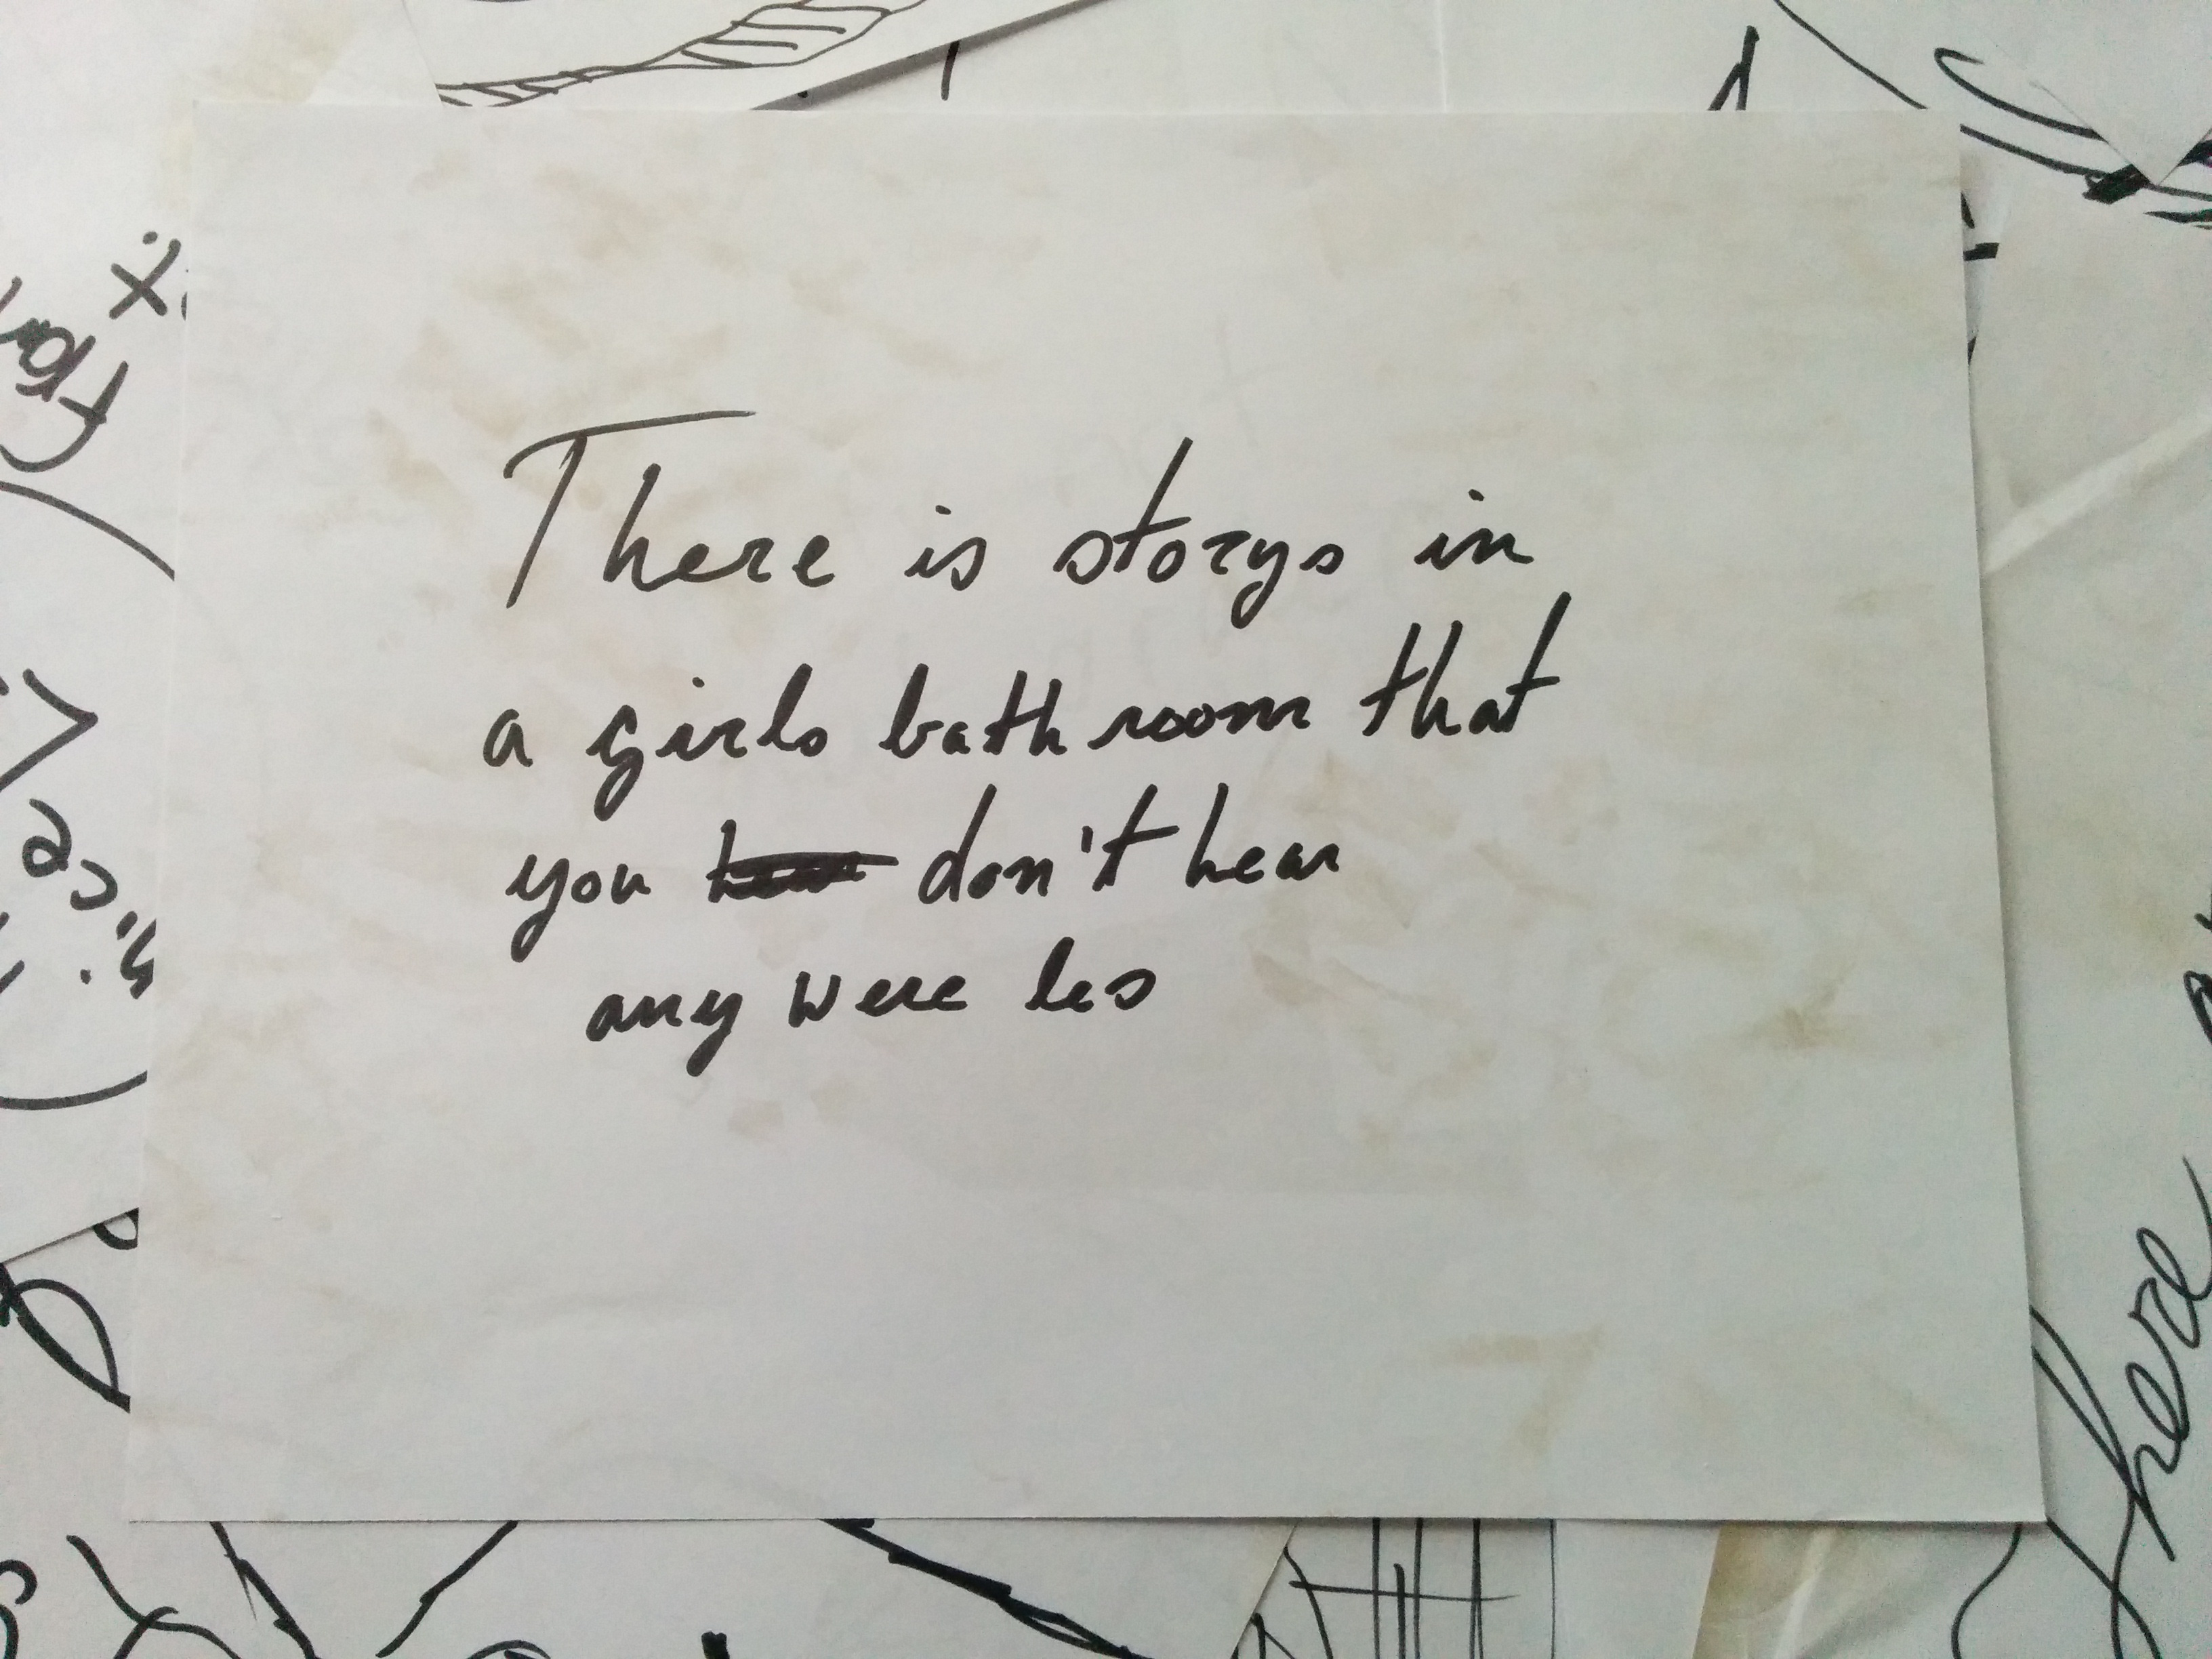 There is storys in
a girls bath room that
you don't hear
any were les
here